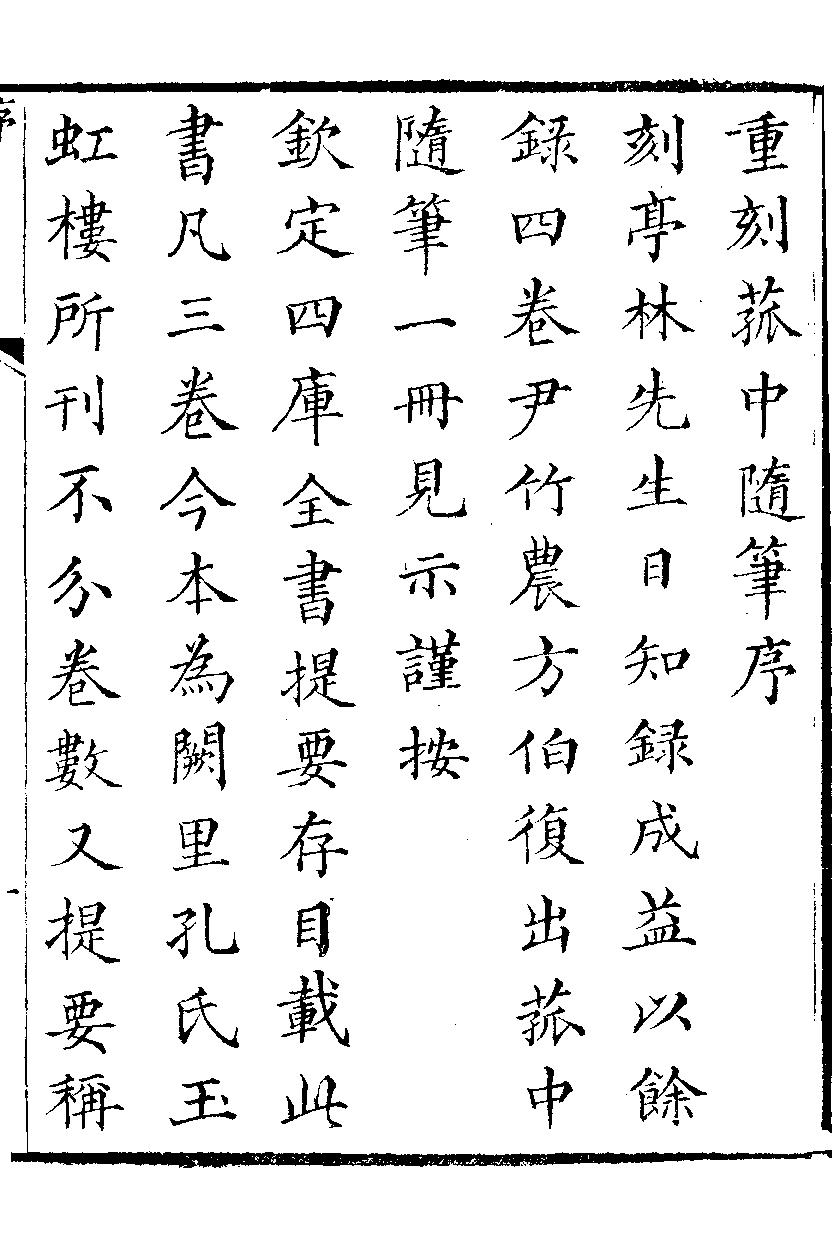 重刻菰中隨筆序
刻亭林先生日知録成益以餘
録四卷尹竹農方伯復出菰中
隨筆一冊見示謹按
欽定四庫全書提要存目載此
書凡三卷今本為闕里孔氏玉
虹樓所刊不分卷數又提要稱
序
一